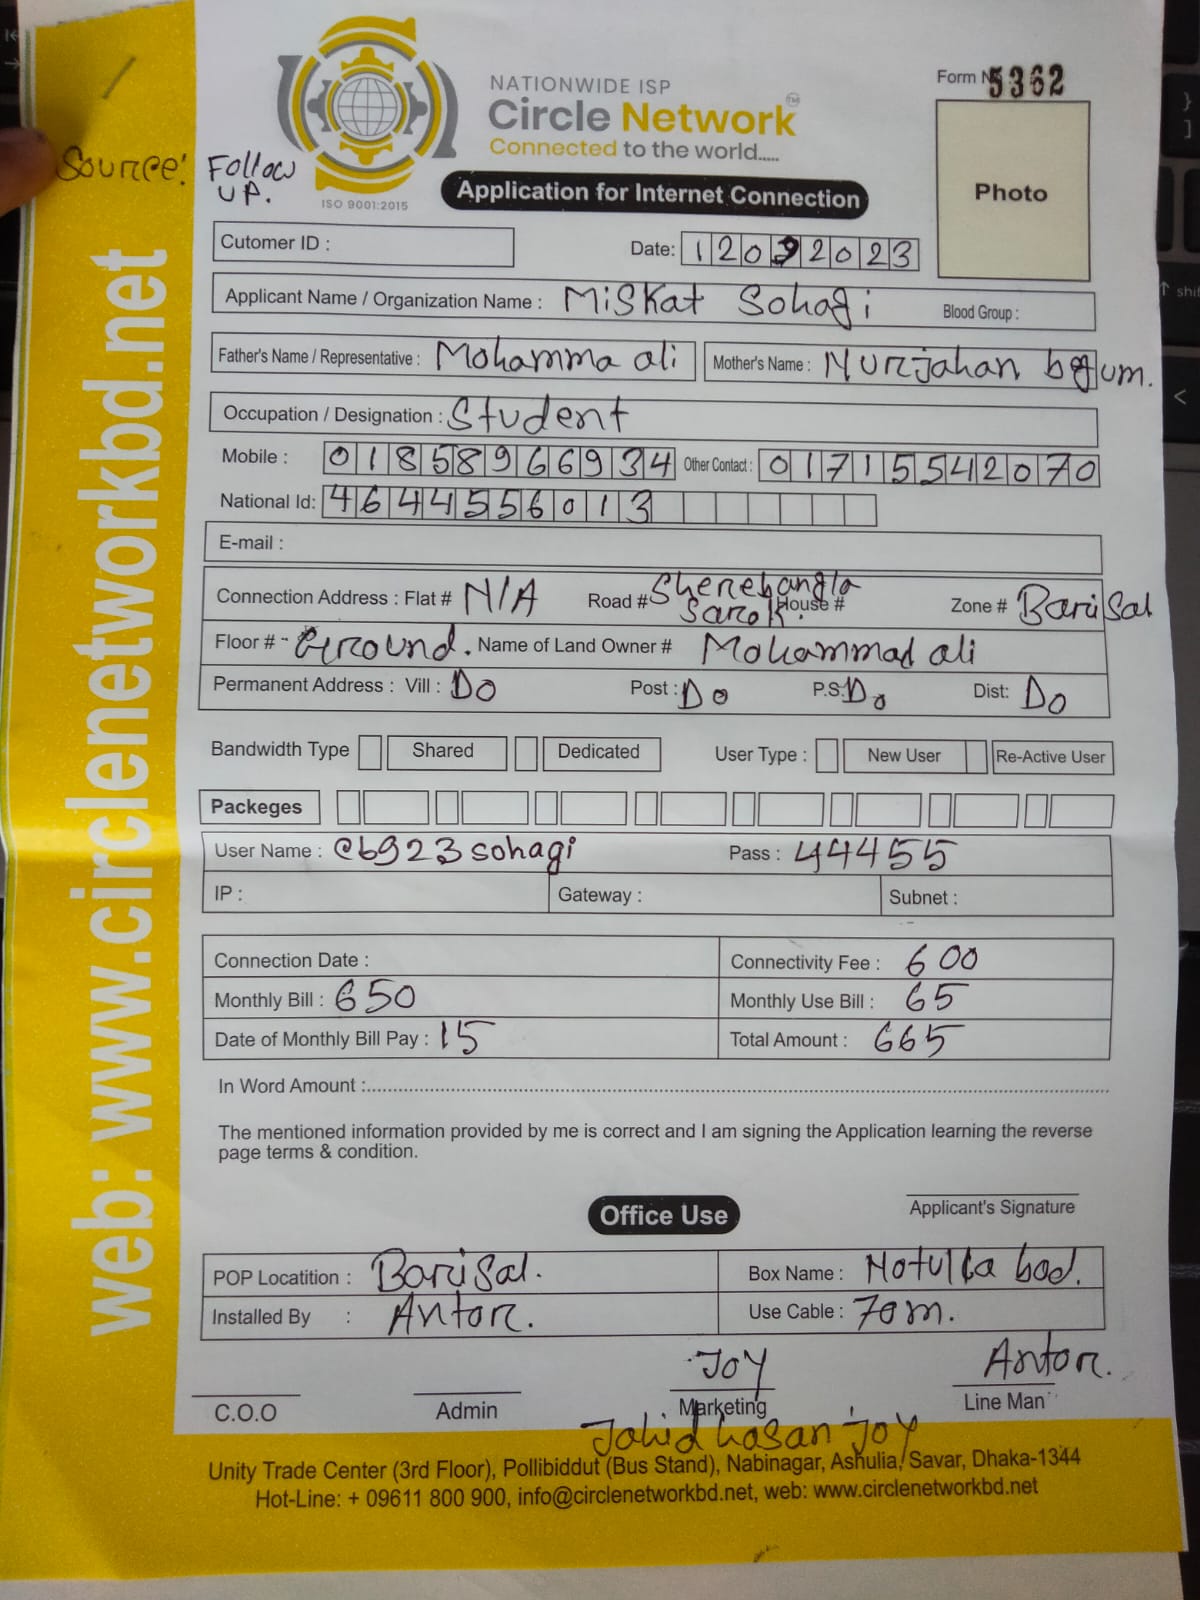 NATIONWIDE ISP
Circle Network™
Connected to the world.....
ISO 9001:2015
Form N 5362
Photo
Source: Follow UP.
Application for Internet Connection
Cutomer ID :
Date: 12092023
Applicant Name / Organization Name : Miskat Sohagi Blood Group :
Father's Name / Representative : Mohamma ali Mother's Name : Nurjahan begum.
Occupation / Designation : Student
Mobile : 01858966934 Other Contact : 01715542070
National Id: 4644556013
E-mail :
Connection Address : Flat # N/A Road # Sherebangla Sarok. House # Zone # Barisal
Floor # - Ground. Name of Land Owner # Mohammad ali
Permanent Address : Vill : Do Post : Do P.S: Do Dist: Do
Bandwidth Type Shared Dedicated User Type : New User Re-Active User
Packeges
User Name : cb923sohagi Pass : 44455
IP : Gateway : Subnet :
Connection Date : Connectivity Fee : 600
Monthly Bill : 650 Monthly Use Bill : 65
Date of Monthly Bill Pay : 15 Total Amount : 665
In Word Amount :
The mentioned information provided by me is correct and I am signing the Application learning the reverse
page terms & condition.
Applicant's Signature
Office Use
POP Locatition : Barisal. Box Name : Notulla bad.
Installed By : Antor. Use Cable : 70m.
Joy Antor.
C.O.O Admin Marketing Line Man
Jahid hasan joy
Unity Trade Center (3rd Floor), Pollibiddut (Bus Stand), Nabinagar, Ashulia, Savar, Dhaka-1344
Hot-Line: + 09611 800 900, info@circlenetworkbd.net, web: www.circlenetworkbd.net
web: www.circlenetworkbd.net